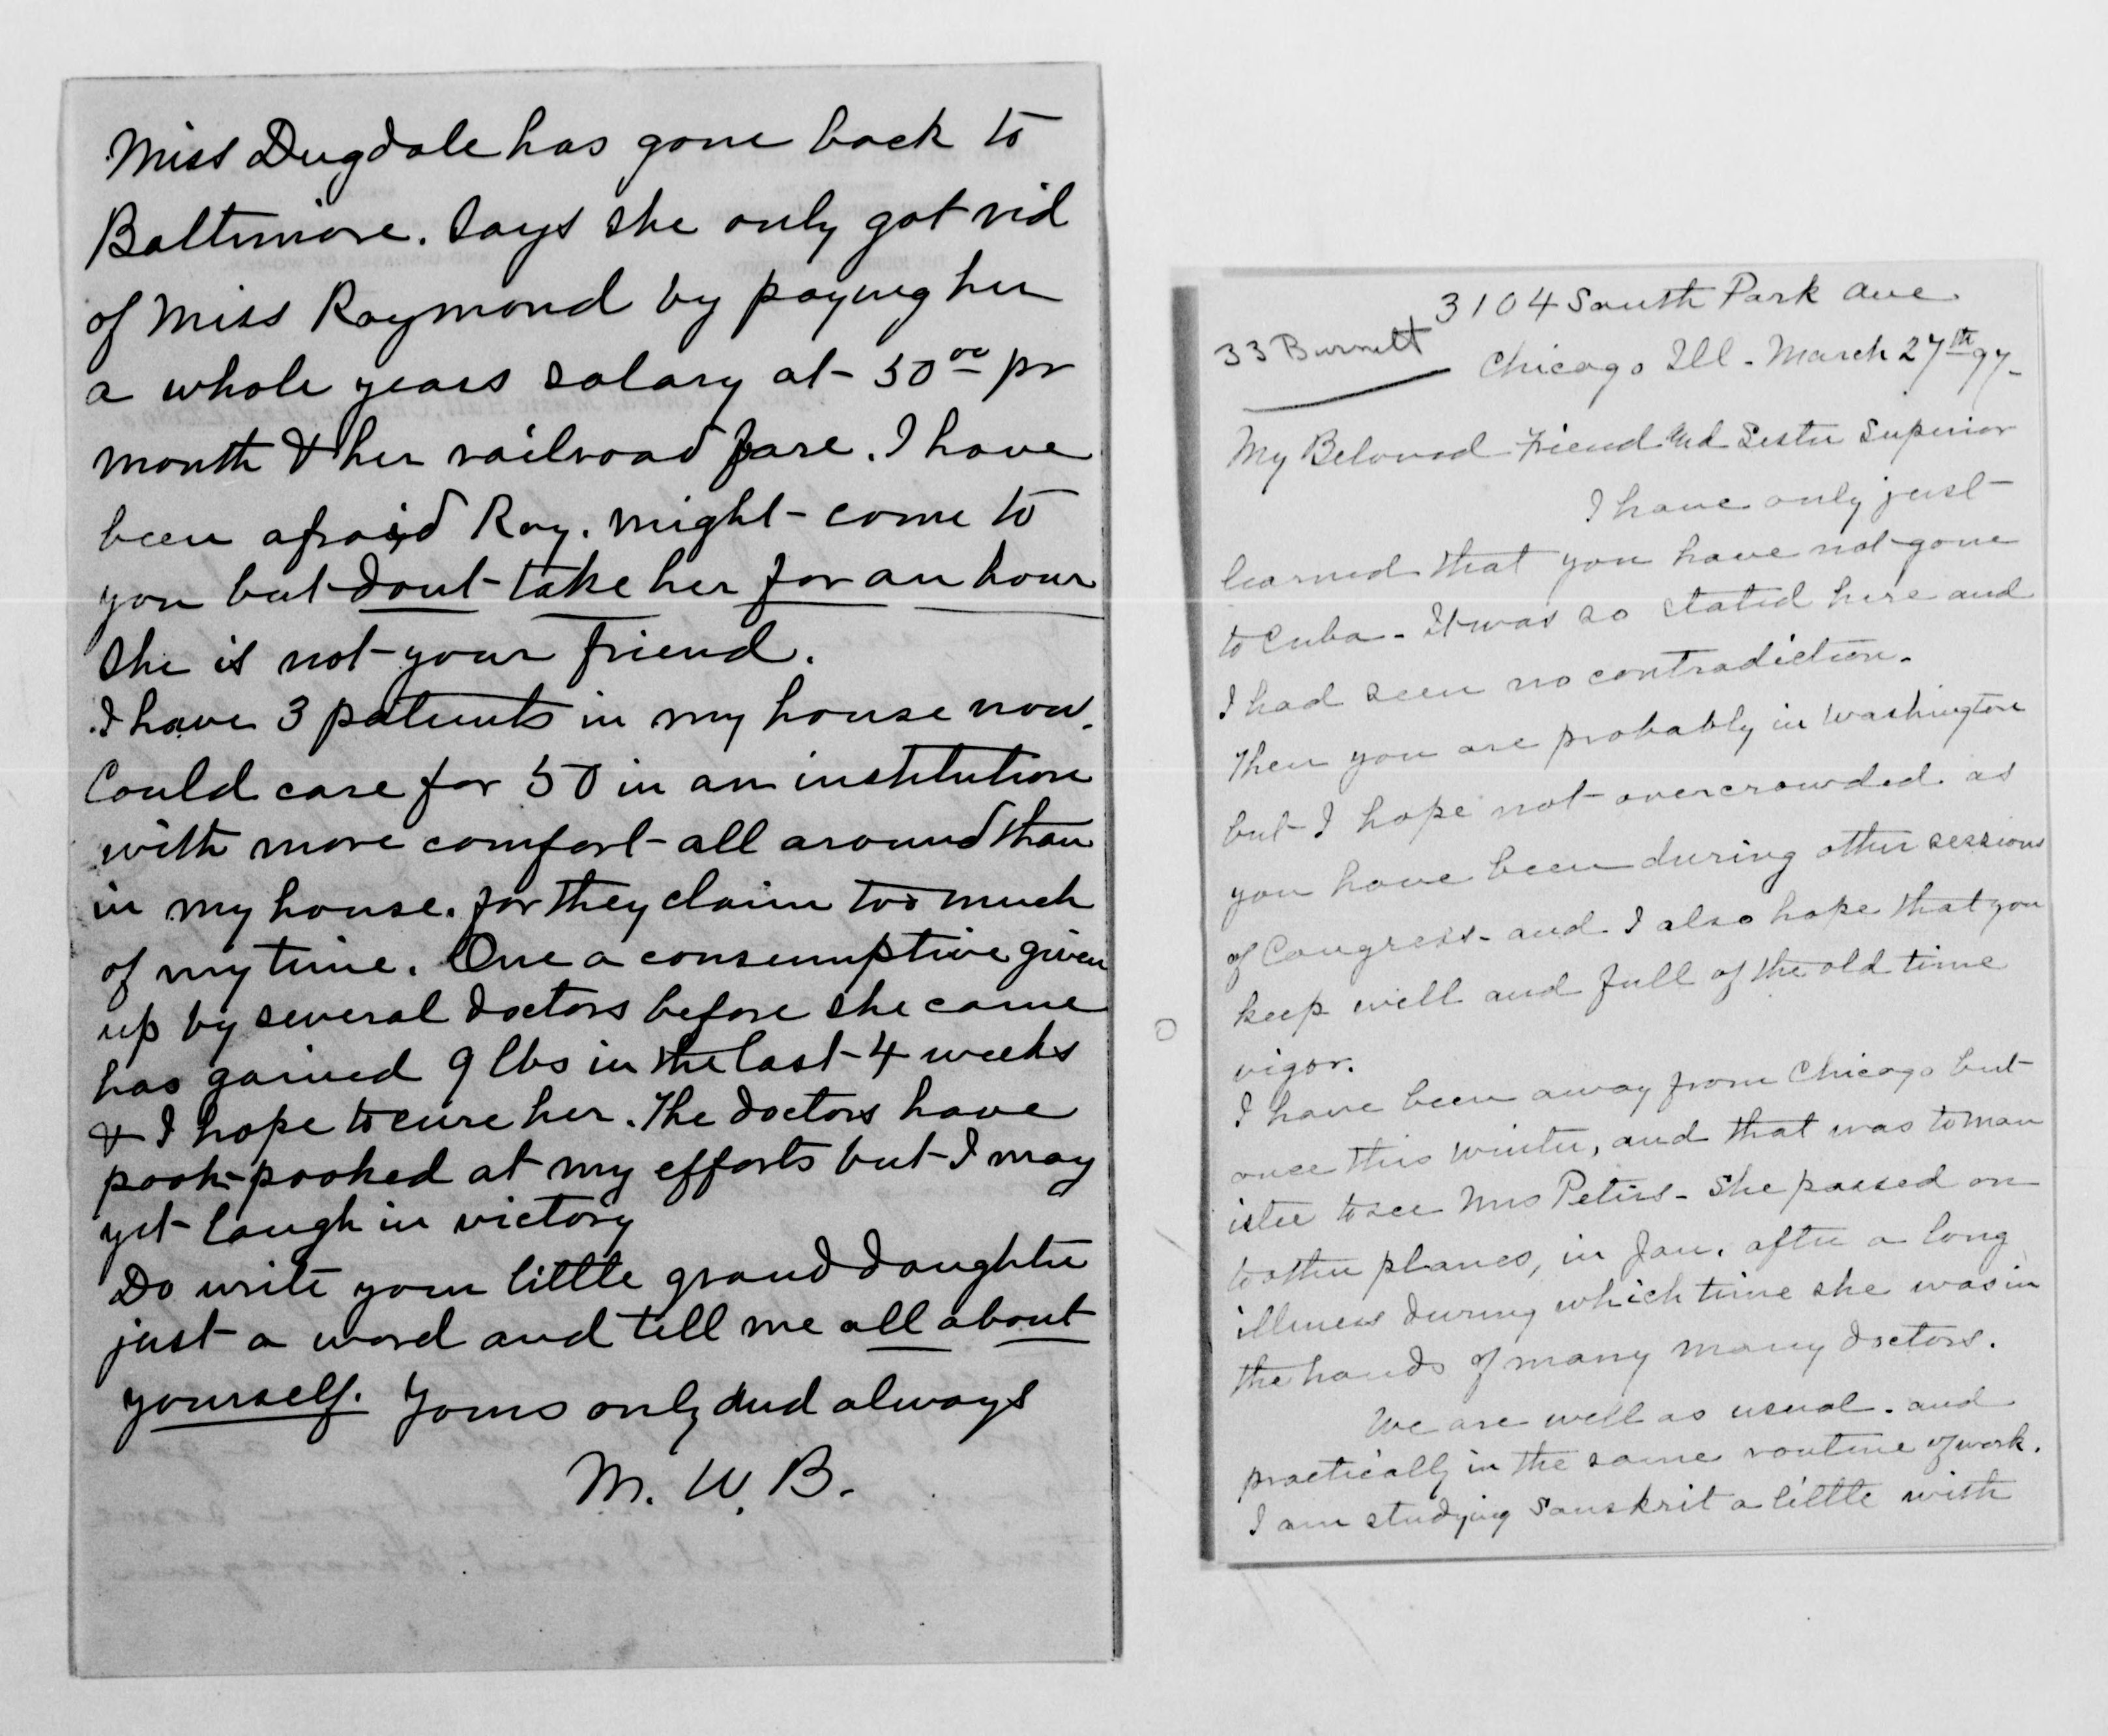 Miss Dugdale has gone back to
Baltimore. Says she only got rid
of Miss Raymond by paying her
a whole years salary at 50 00 pr
month & her railroad fare. I have
been afraid Ray. might come to
you but dont take her for an hour
She is not your friend.
I have 3 patients in my house now.
Could care for 50 in an institution
with more comfort all around than
in my house. for they claim too much
of my time. One a consumptive given
up by several doctors before she came
has gained 9 lbs in the last 4 weeks
& I hope to cure her. The doctors have
pooh-poohed at my efforts but I may
yet laugh in victory
Do write your little grand daughter
just a word and tell me all about
yourself. Yours only and always
M. W. B.
3104 South Park Ave
33 Burnett
Chicago Ill. March 27th 97-
My Beloved Friend and Sister Superior
I have only just
learned that you have not gone
to Cuba - It was so stated here and
I had seen no contradiction.
Then you are probably in Washington
but I hope not overcrowded as
you have been during other sessions
of Congress - and I also hope that you
keep well and full of the old time
vigor.
I have been away from Chicago but
once this winter, and that was to Man
istee to see Mrs Peters - She passed on
to other planes, in Jan. after a long
illness during which time she was in
the hands of many many doctors.
We are well as usual. and
practically in the same routine of work.
I am studying Sanskrit a little with